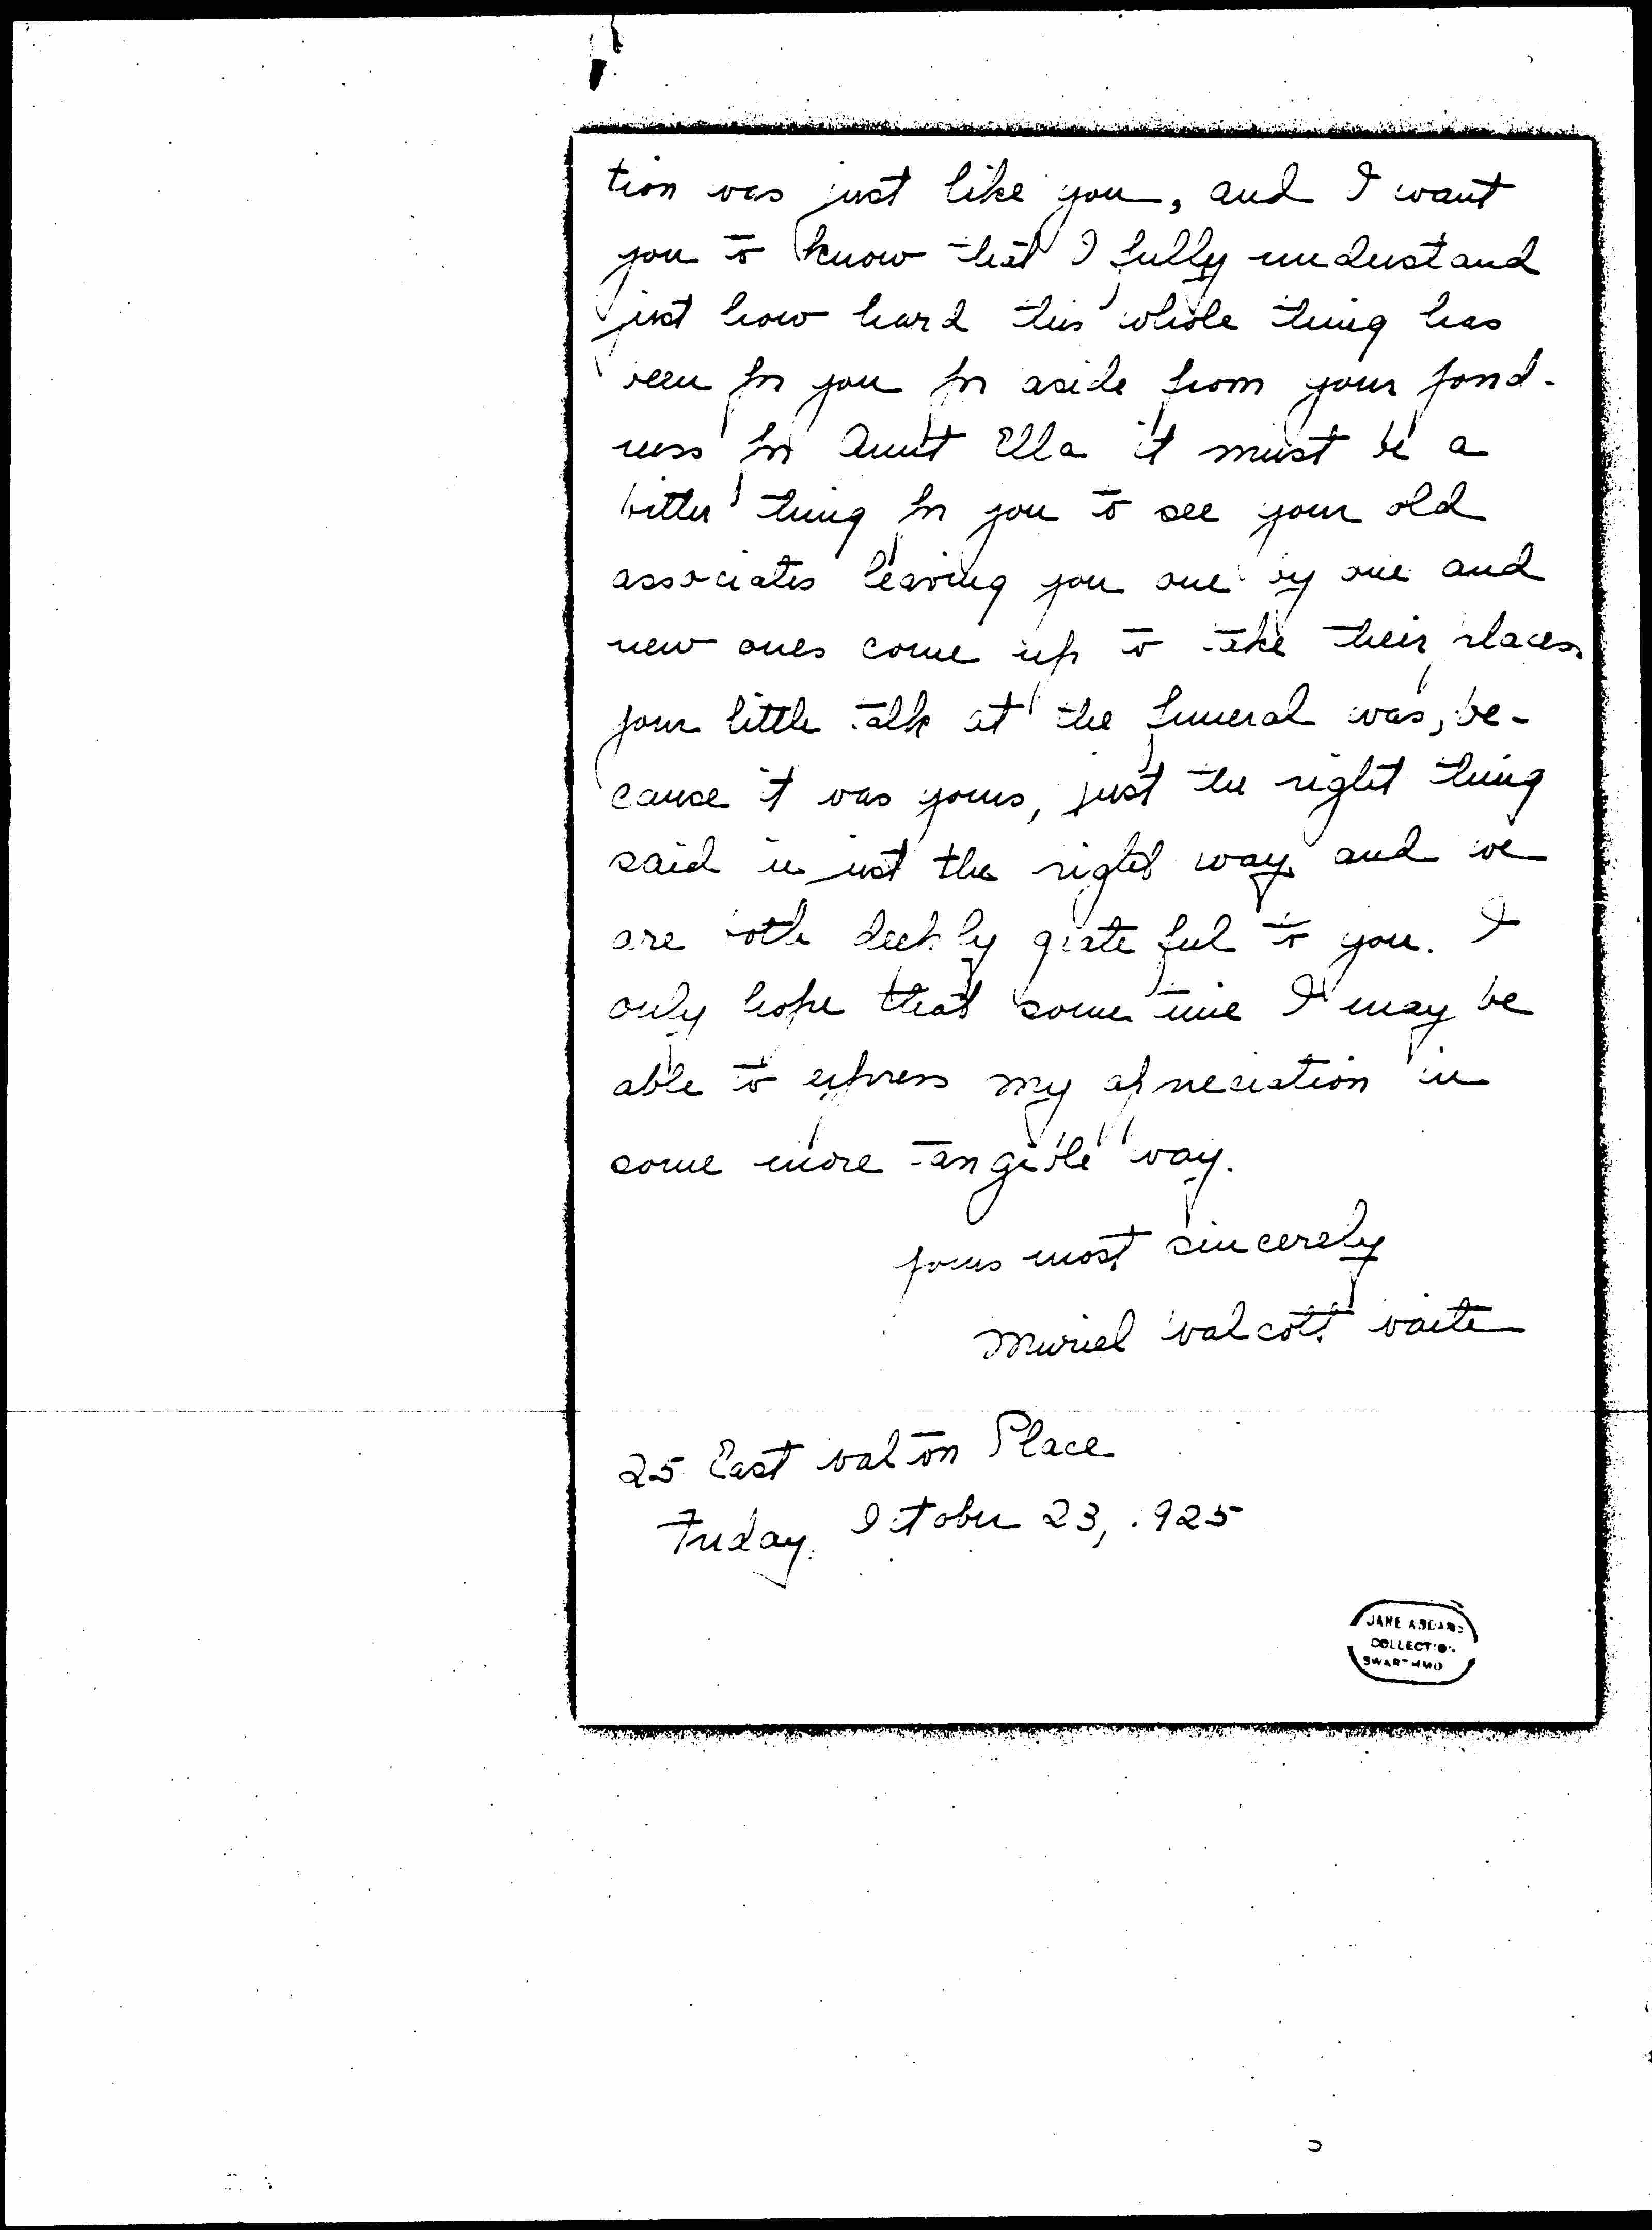 tion was just like you, and I want
you to know that I fully understand
just how hard this whole thing has
been for you for aside from your fond-
ness for Aunt Ella it must be a
bitter thing for you to see your old
associates leaving you one by one and
new ones come up to take their places.
Your little talk at the funeral was, be-
cause it was yours, just the right thing
said in just the right way and we
are both deeply grateful to you. I
only hope that some time I may be
able to express my appreciation in
some more tangible way.
Yours most sincerely
Muriel Walcott Waite
25 East Walton Place
Friday, October 23, 1925
JANE ADDAMS
COLLECTION
SWARTHMO